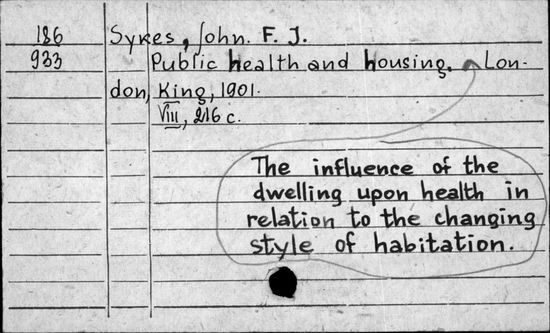 186 Sykes, John. F. J.
933 Public health and housing. Lon-
don, King, 1901.
VIII, 216 c.
The influence of the
dwelling upon health in
relation to the changing
style of habitation.